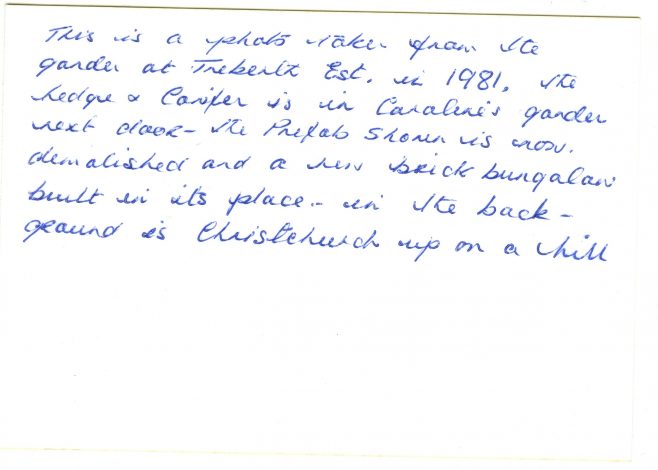 This is a photo taken from the
garden at Treberth Est. in 1981. the
hedge & Conifer is in Caroline's garden
next door - the Prefab shown is now.
demolished and a new brick bungalow
built in its place. - in the back -
ground is Christchurch up on a hill